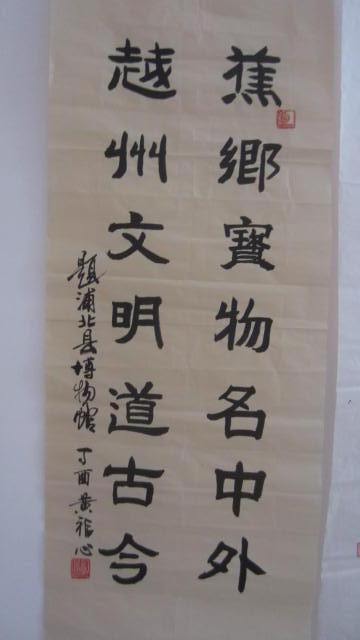 蕉鄉寶物名中外
越州文明道古今
題浦北县博物馆
丁酉黄福心